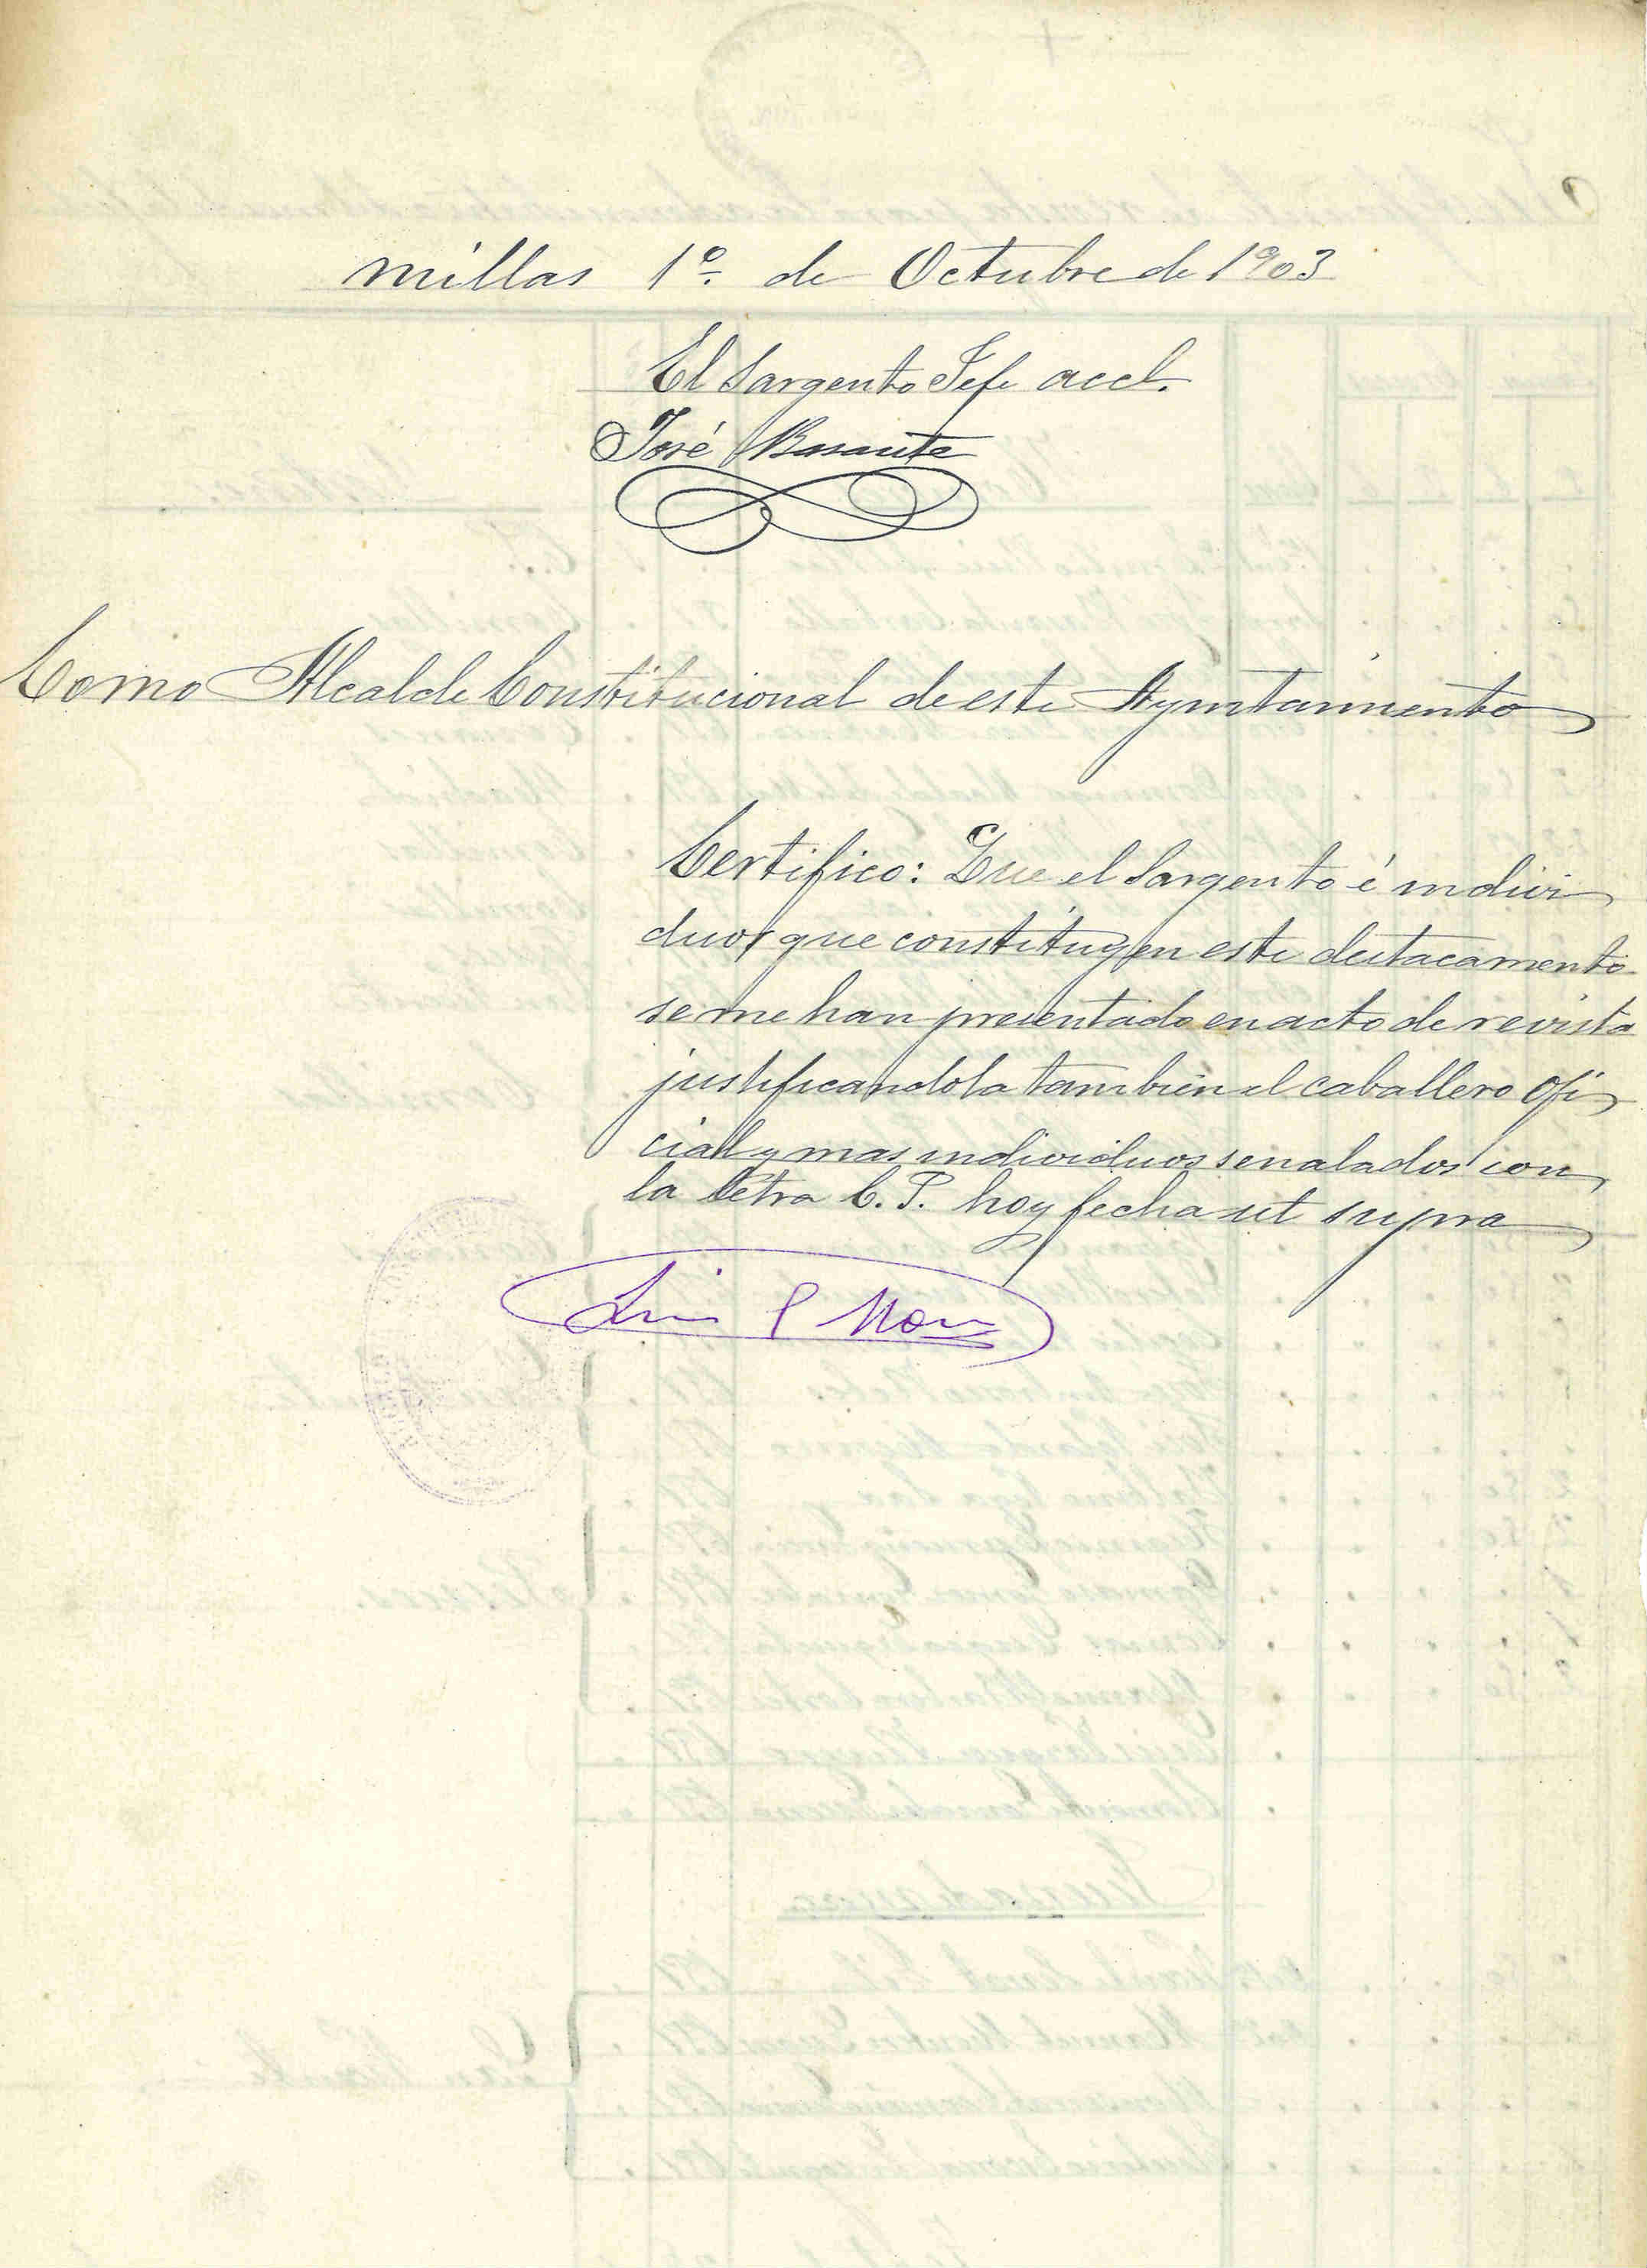 millas 1º de Octubre de 1903
El Sargento Jefe accl.
José Basanta
Como Alcalde Constitucional de este Ayuntamiento
Certifico: Que el Sargento é indivi
duos que constituyen este destacamento
se me han presentado en acto de revista
justificandola tambien el caballero ofi
cial y mas individuos senalados con
la letra C. P. hoy fecha ut supra
Luis P